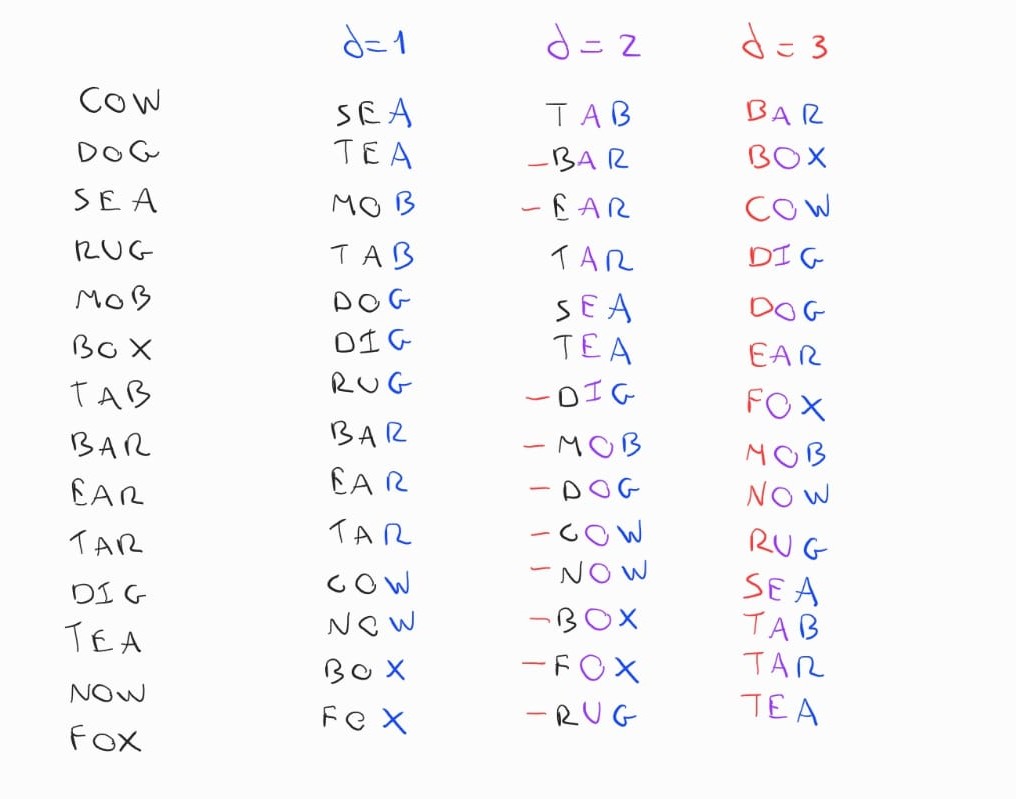 d=1 d=2 d=3
COW SEA TAB BAR
DOG TEA -BAR BOX
SEA MOB -EAR COW
RUG TAB TAR DIG
MOB DOG SEA DOG
BOX DIG TEA EAR
TAB RUG -DIG FOX
BAR BAR -MOB MOB
EAR EAR -DOG NOW
TAR TAR -COW RUG
DIG COW -NOW SEA
TEA NOW -BOX TAB
NOW BOX -FOX TAR
FOX FOX -RUG TEA